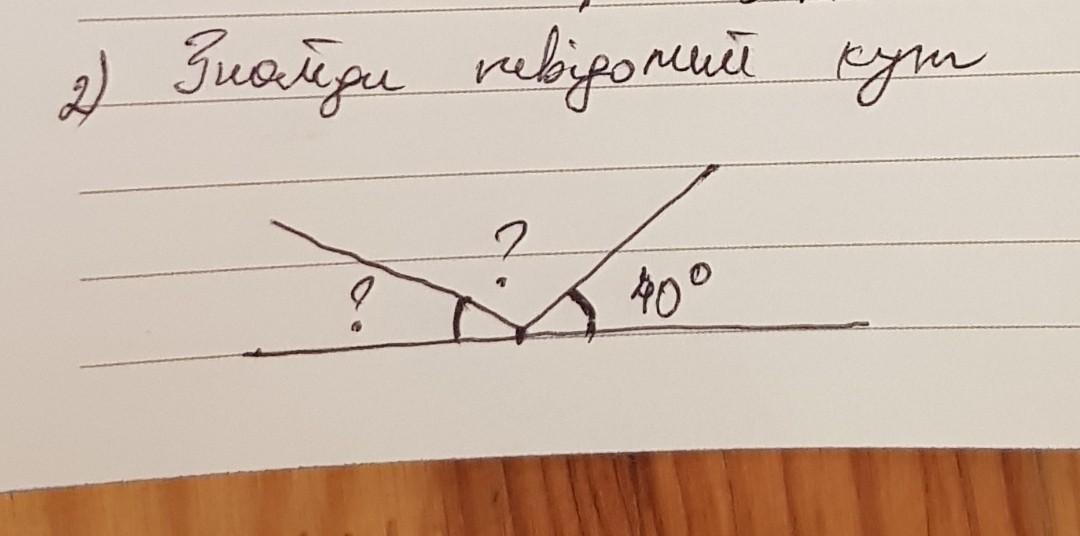 2) Знайди невідомий кут
?
?
40°